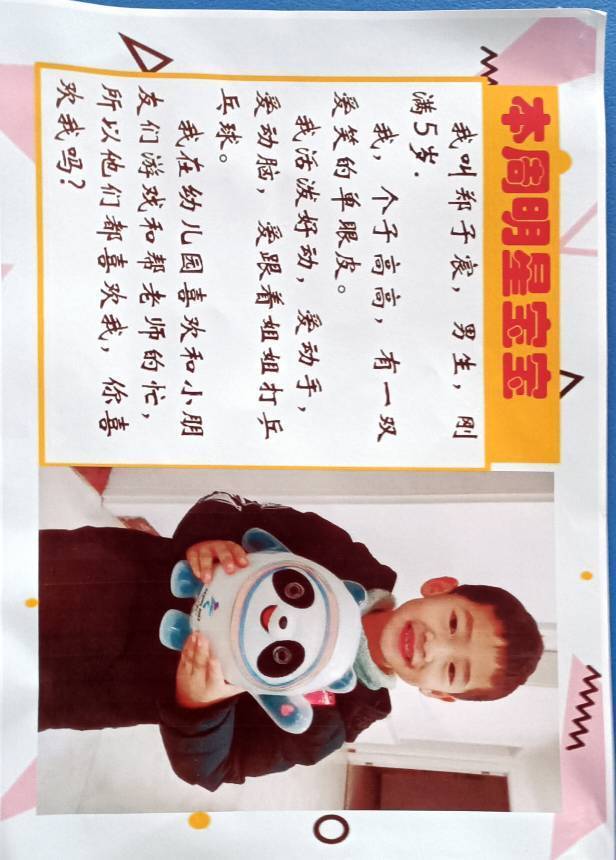 本周明星宝宝
我叫郑子宸，男生，刚
满5岁.
我，个子高高，有一双
爱笑的单眼皮。
我活泼好动，爱动手，
爱动脑，爱跟着姐姐打乒
乓球。
我在幼儿园喜欢和小朋
友们游戏和帮老师的忙，
所以他们都喜欢我，你喜
欢我吗？